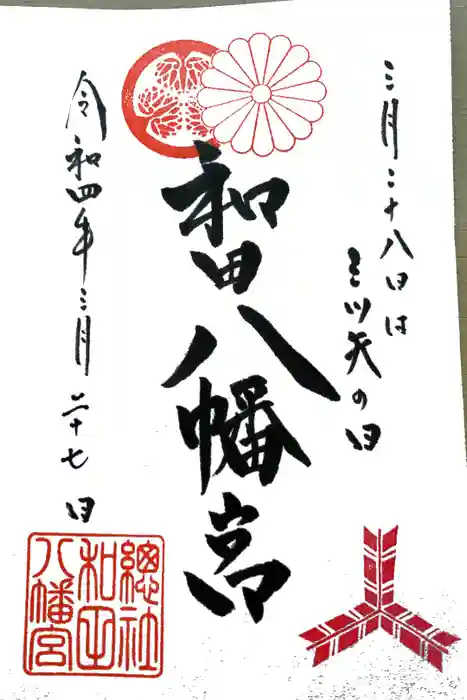 三月二十八日は
三ツ矢の日
和田八幡宮
令和四年三月二十七日
總社
和田
八幡宮